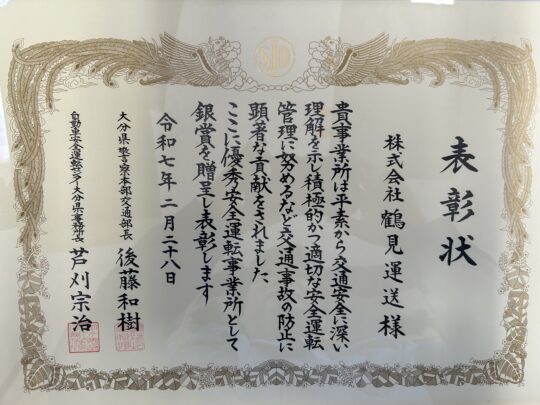 SD
表彰状
株式会社 鶴見運送 様
貴事業所は平素から交通安全に深い
理解を示し積極的かつ適切な安全運転
管理に努めるなど交通事故の防止に
顕著な貢献をされました
ここに優秀安全運転事業所として
銀賞を贈呈し表彰します
令和七年二月二十八日
大分県警察本部交通部長 後藤和樹
自動車安全運転センター大分県事務所長 芦刈宗治